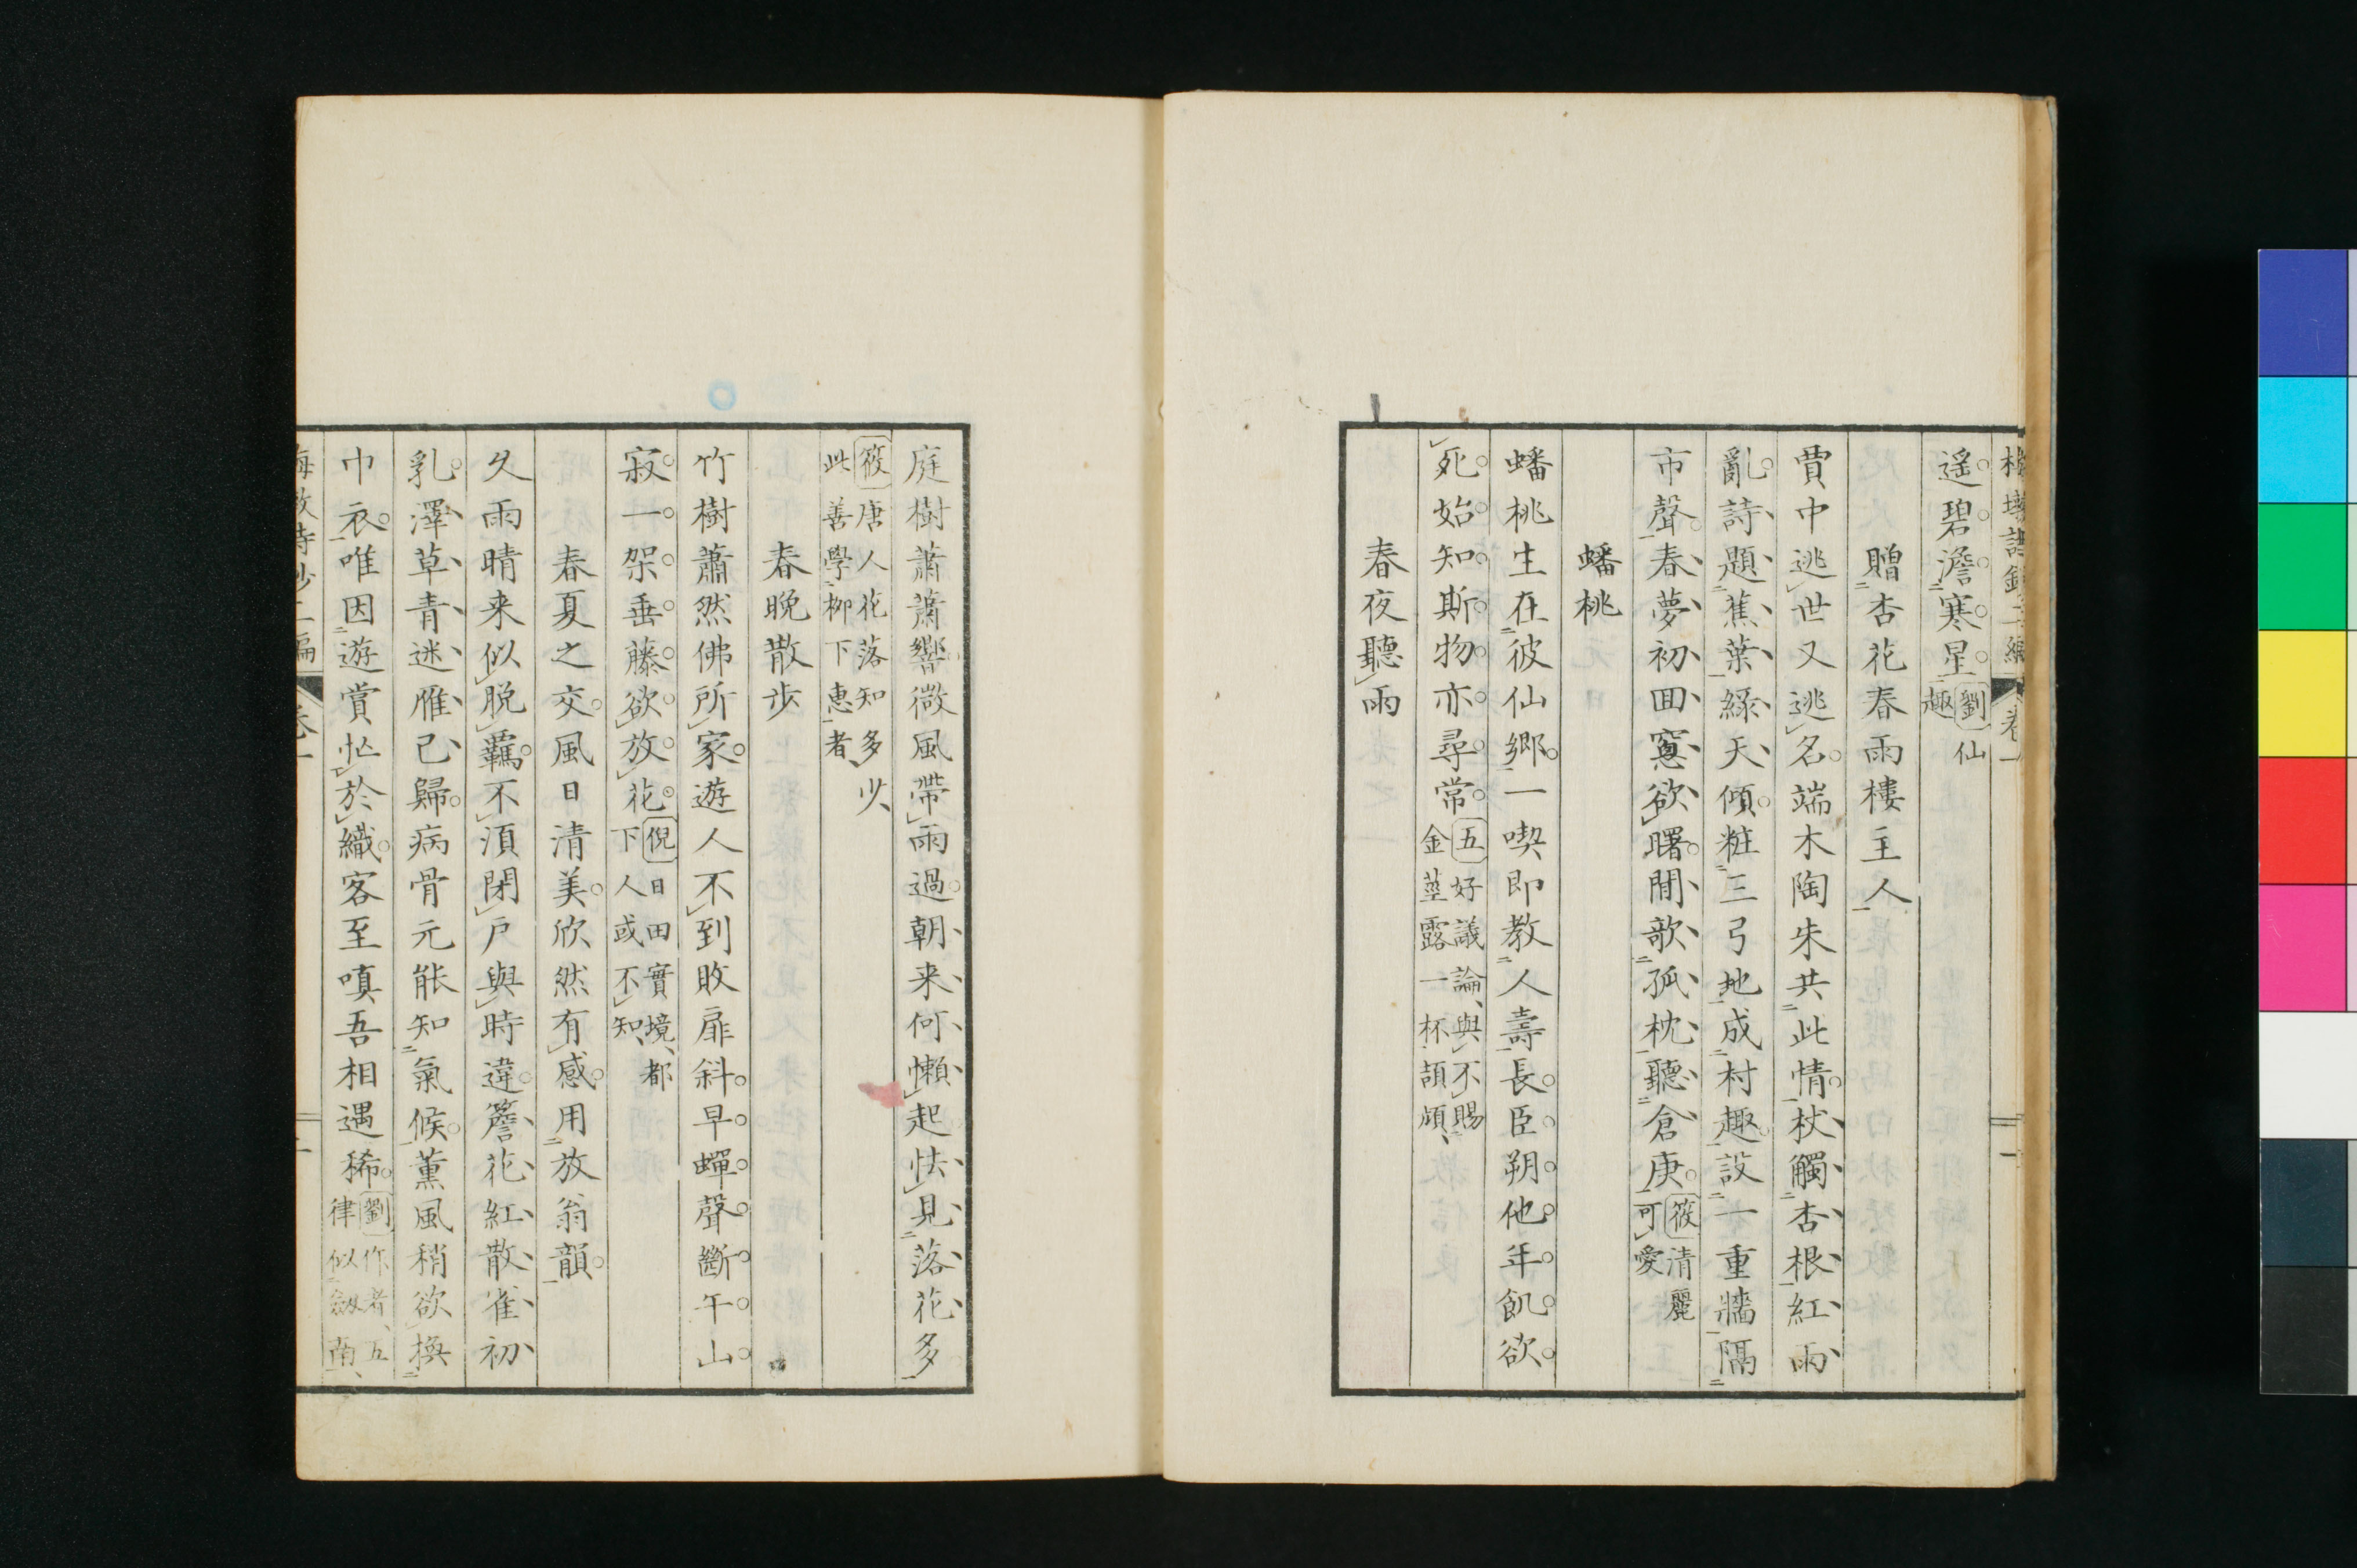 遥碧澹寒星劉仙趣
贈杏花春雨樓主人
賈中逃世又逃名端木陶朱共此情杖觸杏根紅雨
亂詩題蕉葉綠天傾粧三弓地成村趣設一重牆隔
市聲春夢初回窻欲曙閒歌孤枕聽倉庚筱清麗可愛
蟠桃
蟠桃生在彼仙鄉一喫即教人壽長臣朔他年飢欲
死始知斯物亦尋常五好議論與不賜金莖露一杯頡頏
春夜聽雨
庭樹蕭蕭響微風帶雨過朝来何懶起怯見落花多
筱唐人花落知多少此善學柳下惠者
春晚散步
竹樹蕭然佛所家遊人不到敗扉斜早蟬聲斷午山
寂一架垂藤欲放花倪日田實境都下人或不知
春夏之交風日清美欣然有感用放翁韻
久雨晴来似脱羈不須閉戸與時違簷花紅散雀初
乳澤草青迷雁已歸病骨元能知氣候薰風稍欲換
巾衣唯因遊賞忙於織客至嗔吾相遇稀劉作者五律似劔南